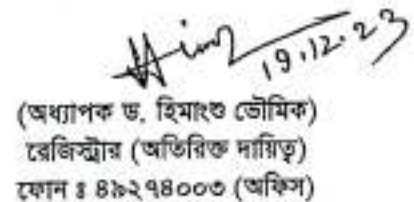 19.12.23
(অধ্যাপক ড. হিমাংশু ভৌমিক)
রেজিস্ট্রার (অতিরিক্ত দায়িত্ব)
ফোন ঃ ৪৯২৭৪০০৩ (অফিস)